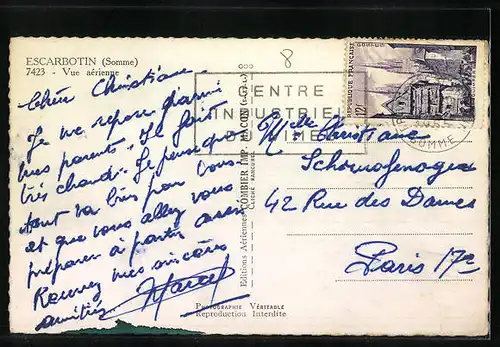 ESCARBOTIN (Somme)
7423 - Vue aérienne
8
Chère Christiane
Je me repose parmi
mes parents. Il fait
très chaud. Je pense que
tout va bien pour vous
et que vous allez vous
préparer à partir aussi
Recevez mes sincères
amitiés Marcel
Editions Aériennes COMBIER IMP. MACON (S.-&-L.)
CENTRE
INDUSTRIEL
POSTES
REPUBLIQUE FRANÇAISE
12F
SOMME
Melle Christiane
42 Rue des Dames
Paris 17e
PHOTOGRAPHIE VÉRITABLE
Reproduction Interdite